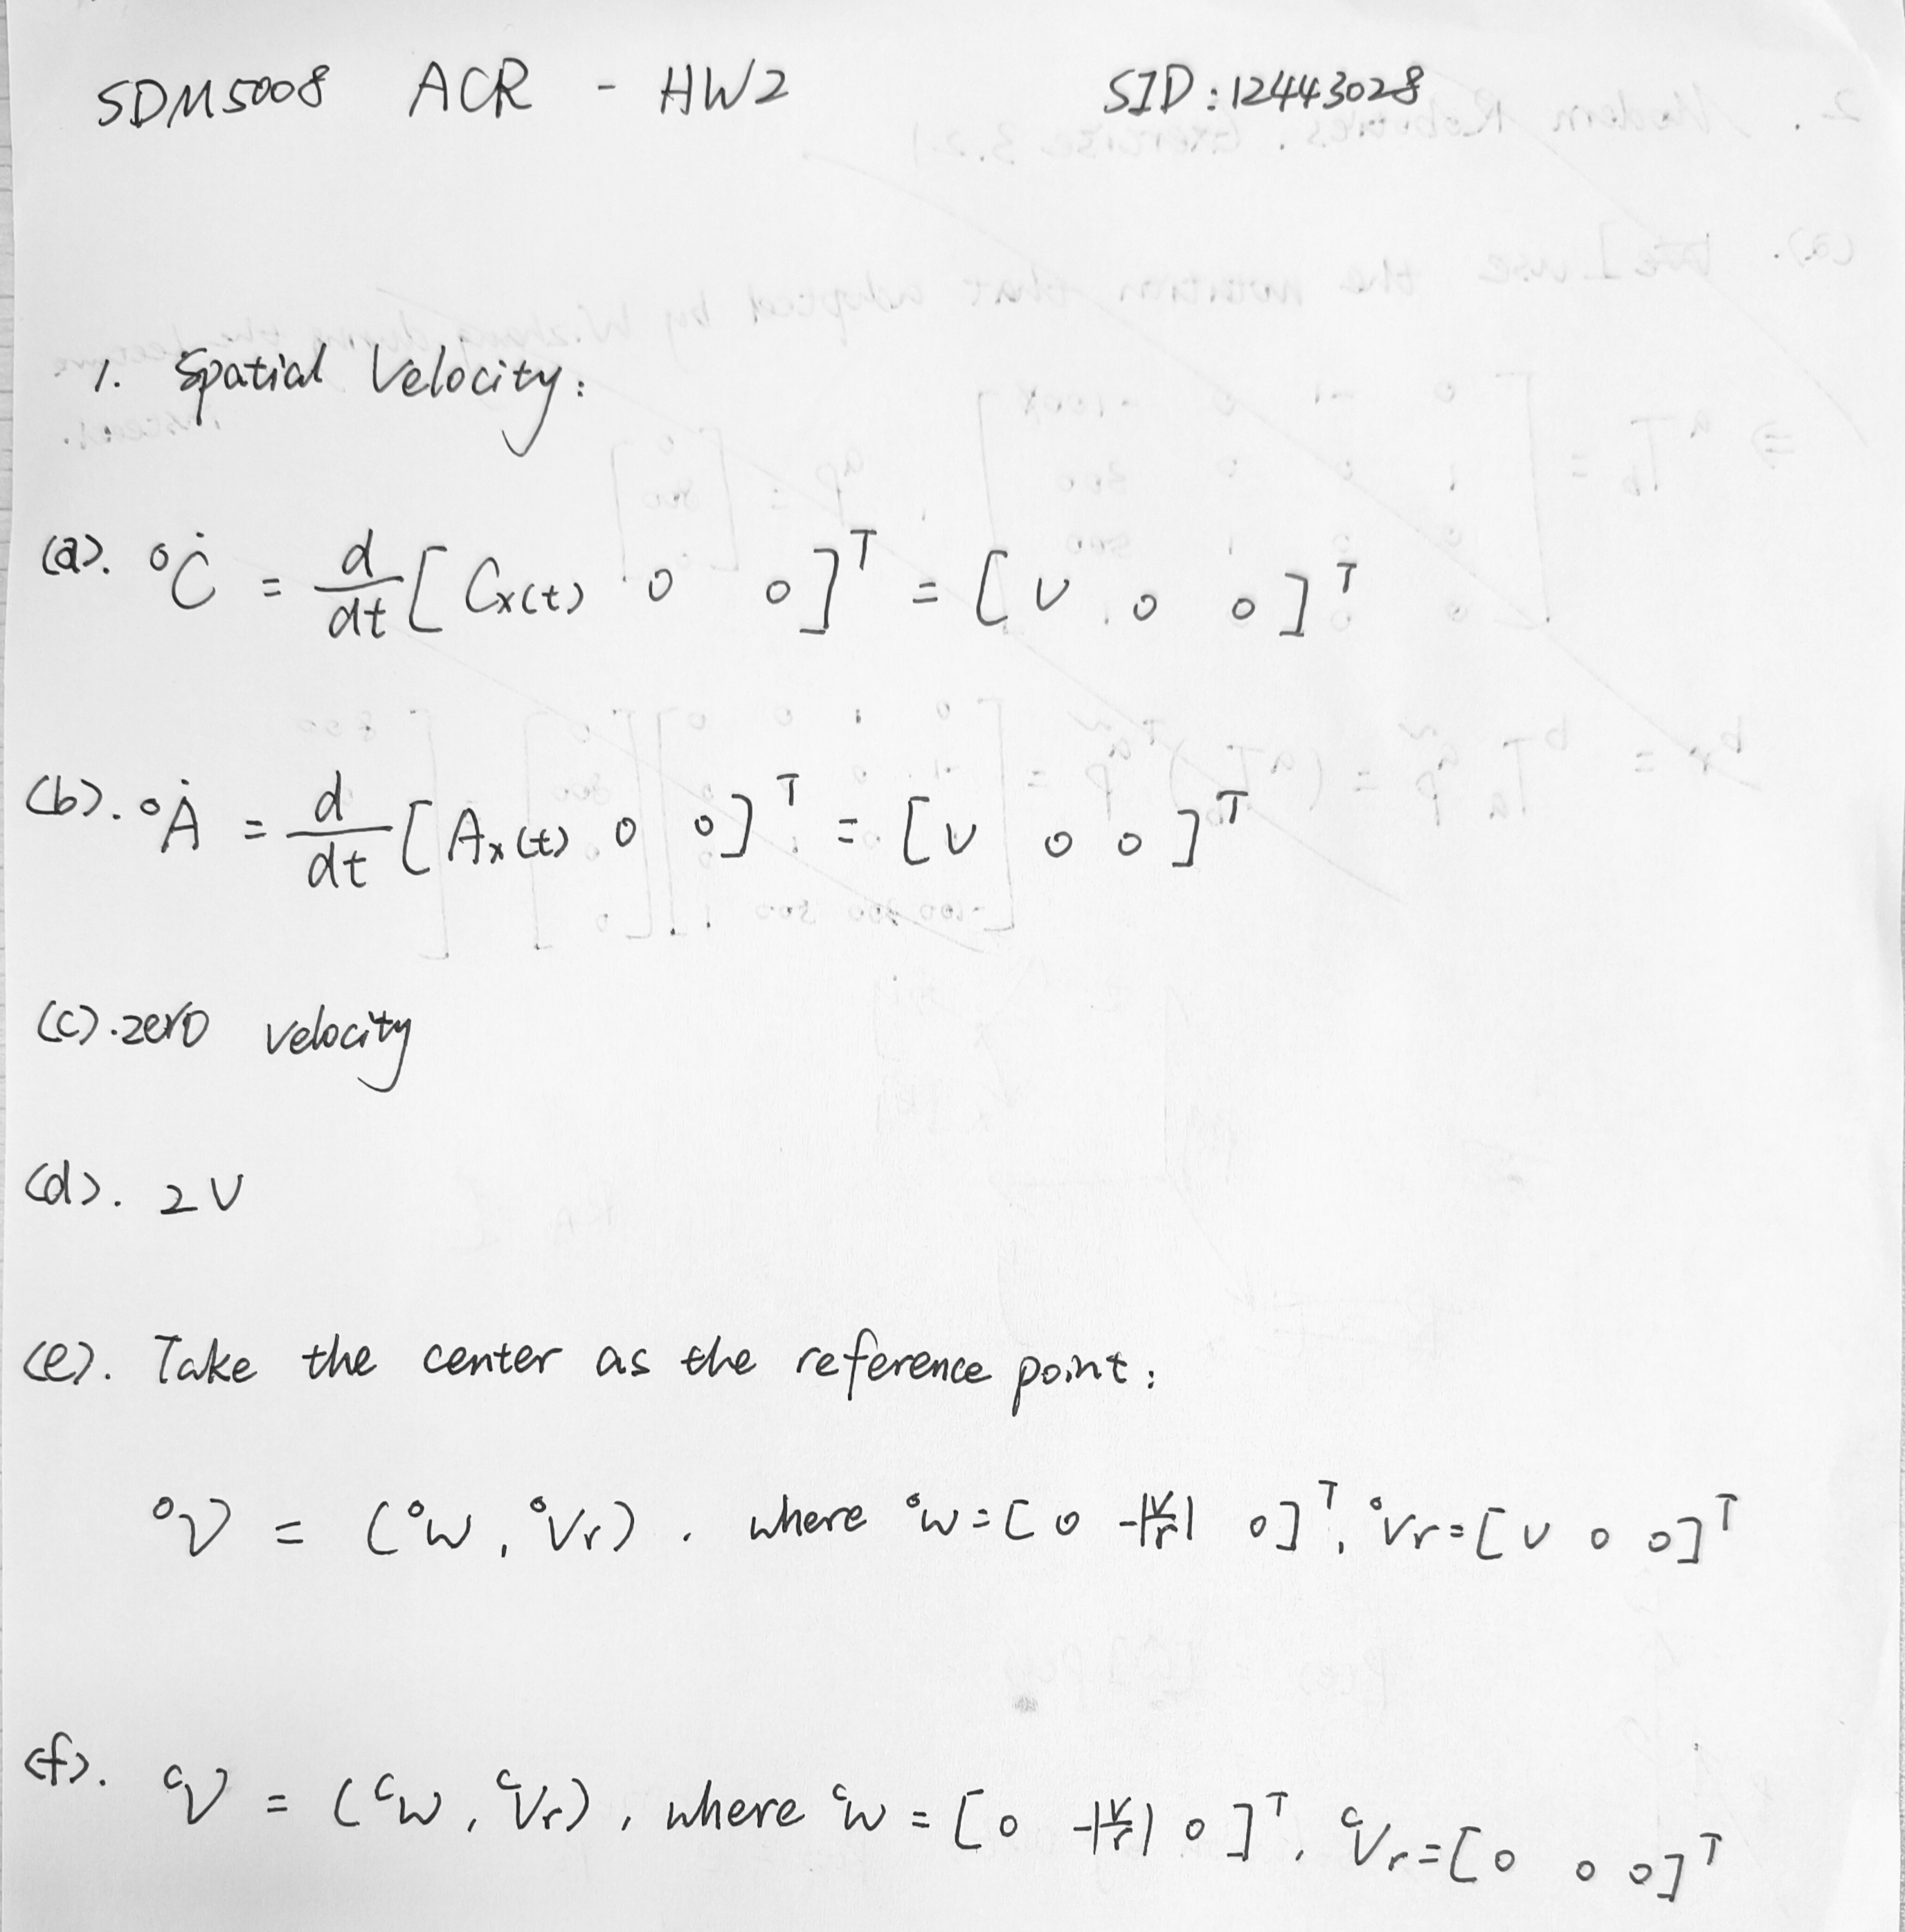 SDM5008 ACR - HW2 SID: 12443028
1. Spatial Velocity:
(a). ⁰Ċ = d/dt [ Cx(t) 0 0 ]ᵀ = [ v 0 0 ]ᵀ
(b). ⁰Ȧ = d/dt [ Ax(t) 0 0 ]ᵀ = [ v 0 0 ]ᵀ
(c). zero velocity
(d). 2v
(e). Take the center as the reference point:
⁰V = (⁰w, ⁰Vr). where ⁰w = [ 0 -|v/r| 0 ]ᵀ, ⁰Vr = [ v 0 0 ]ᵀ
(f). ᶜV = (ᶜw, ᶜVr), where ᶜw = [ 0 -|v/r| 0 ]ᵀ, ᶜVr = [ 0 0 0 ]ᵀ